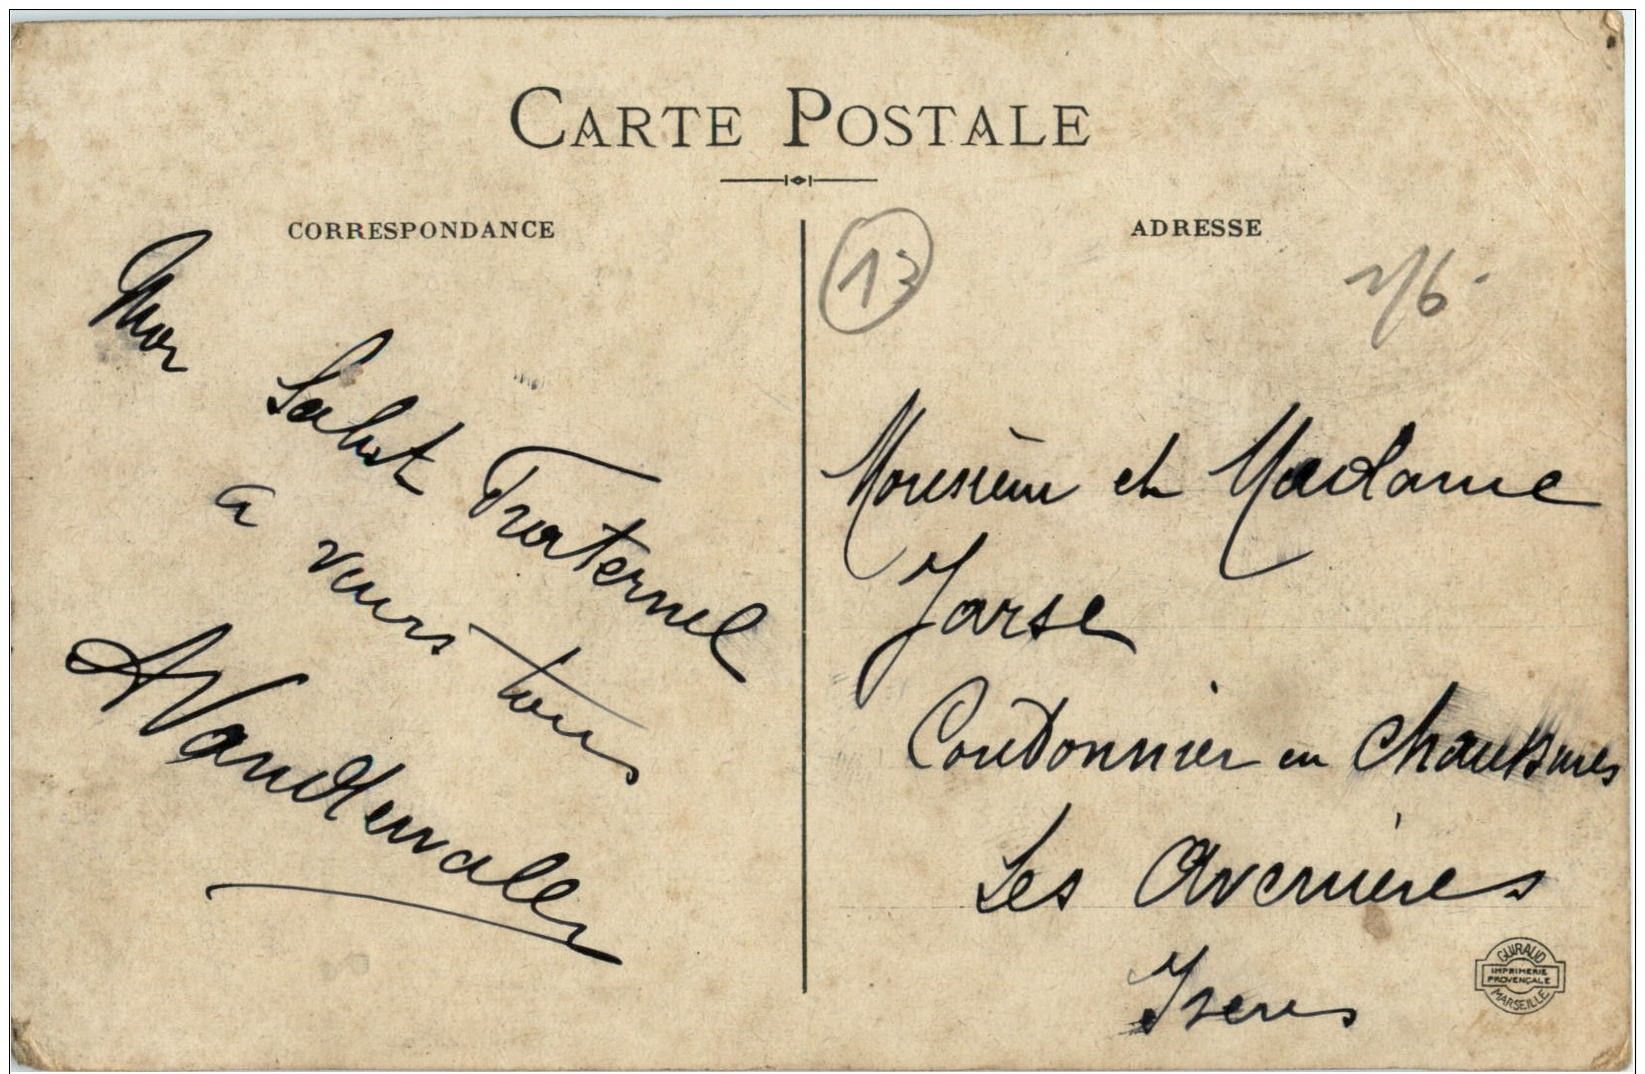 CARTE POSTALE
CORRESPONDANCE
Mon Salut Fraternel
a vous tous
AVandewalle
ADRESSE
13
Monsieur et Madame
Jarse
Cordonnier en Chaussures
Les Avenières
Isère
GUIRAUD
IMPRIMERIE
PROVENÇALE
MARSEILLE